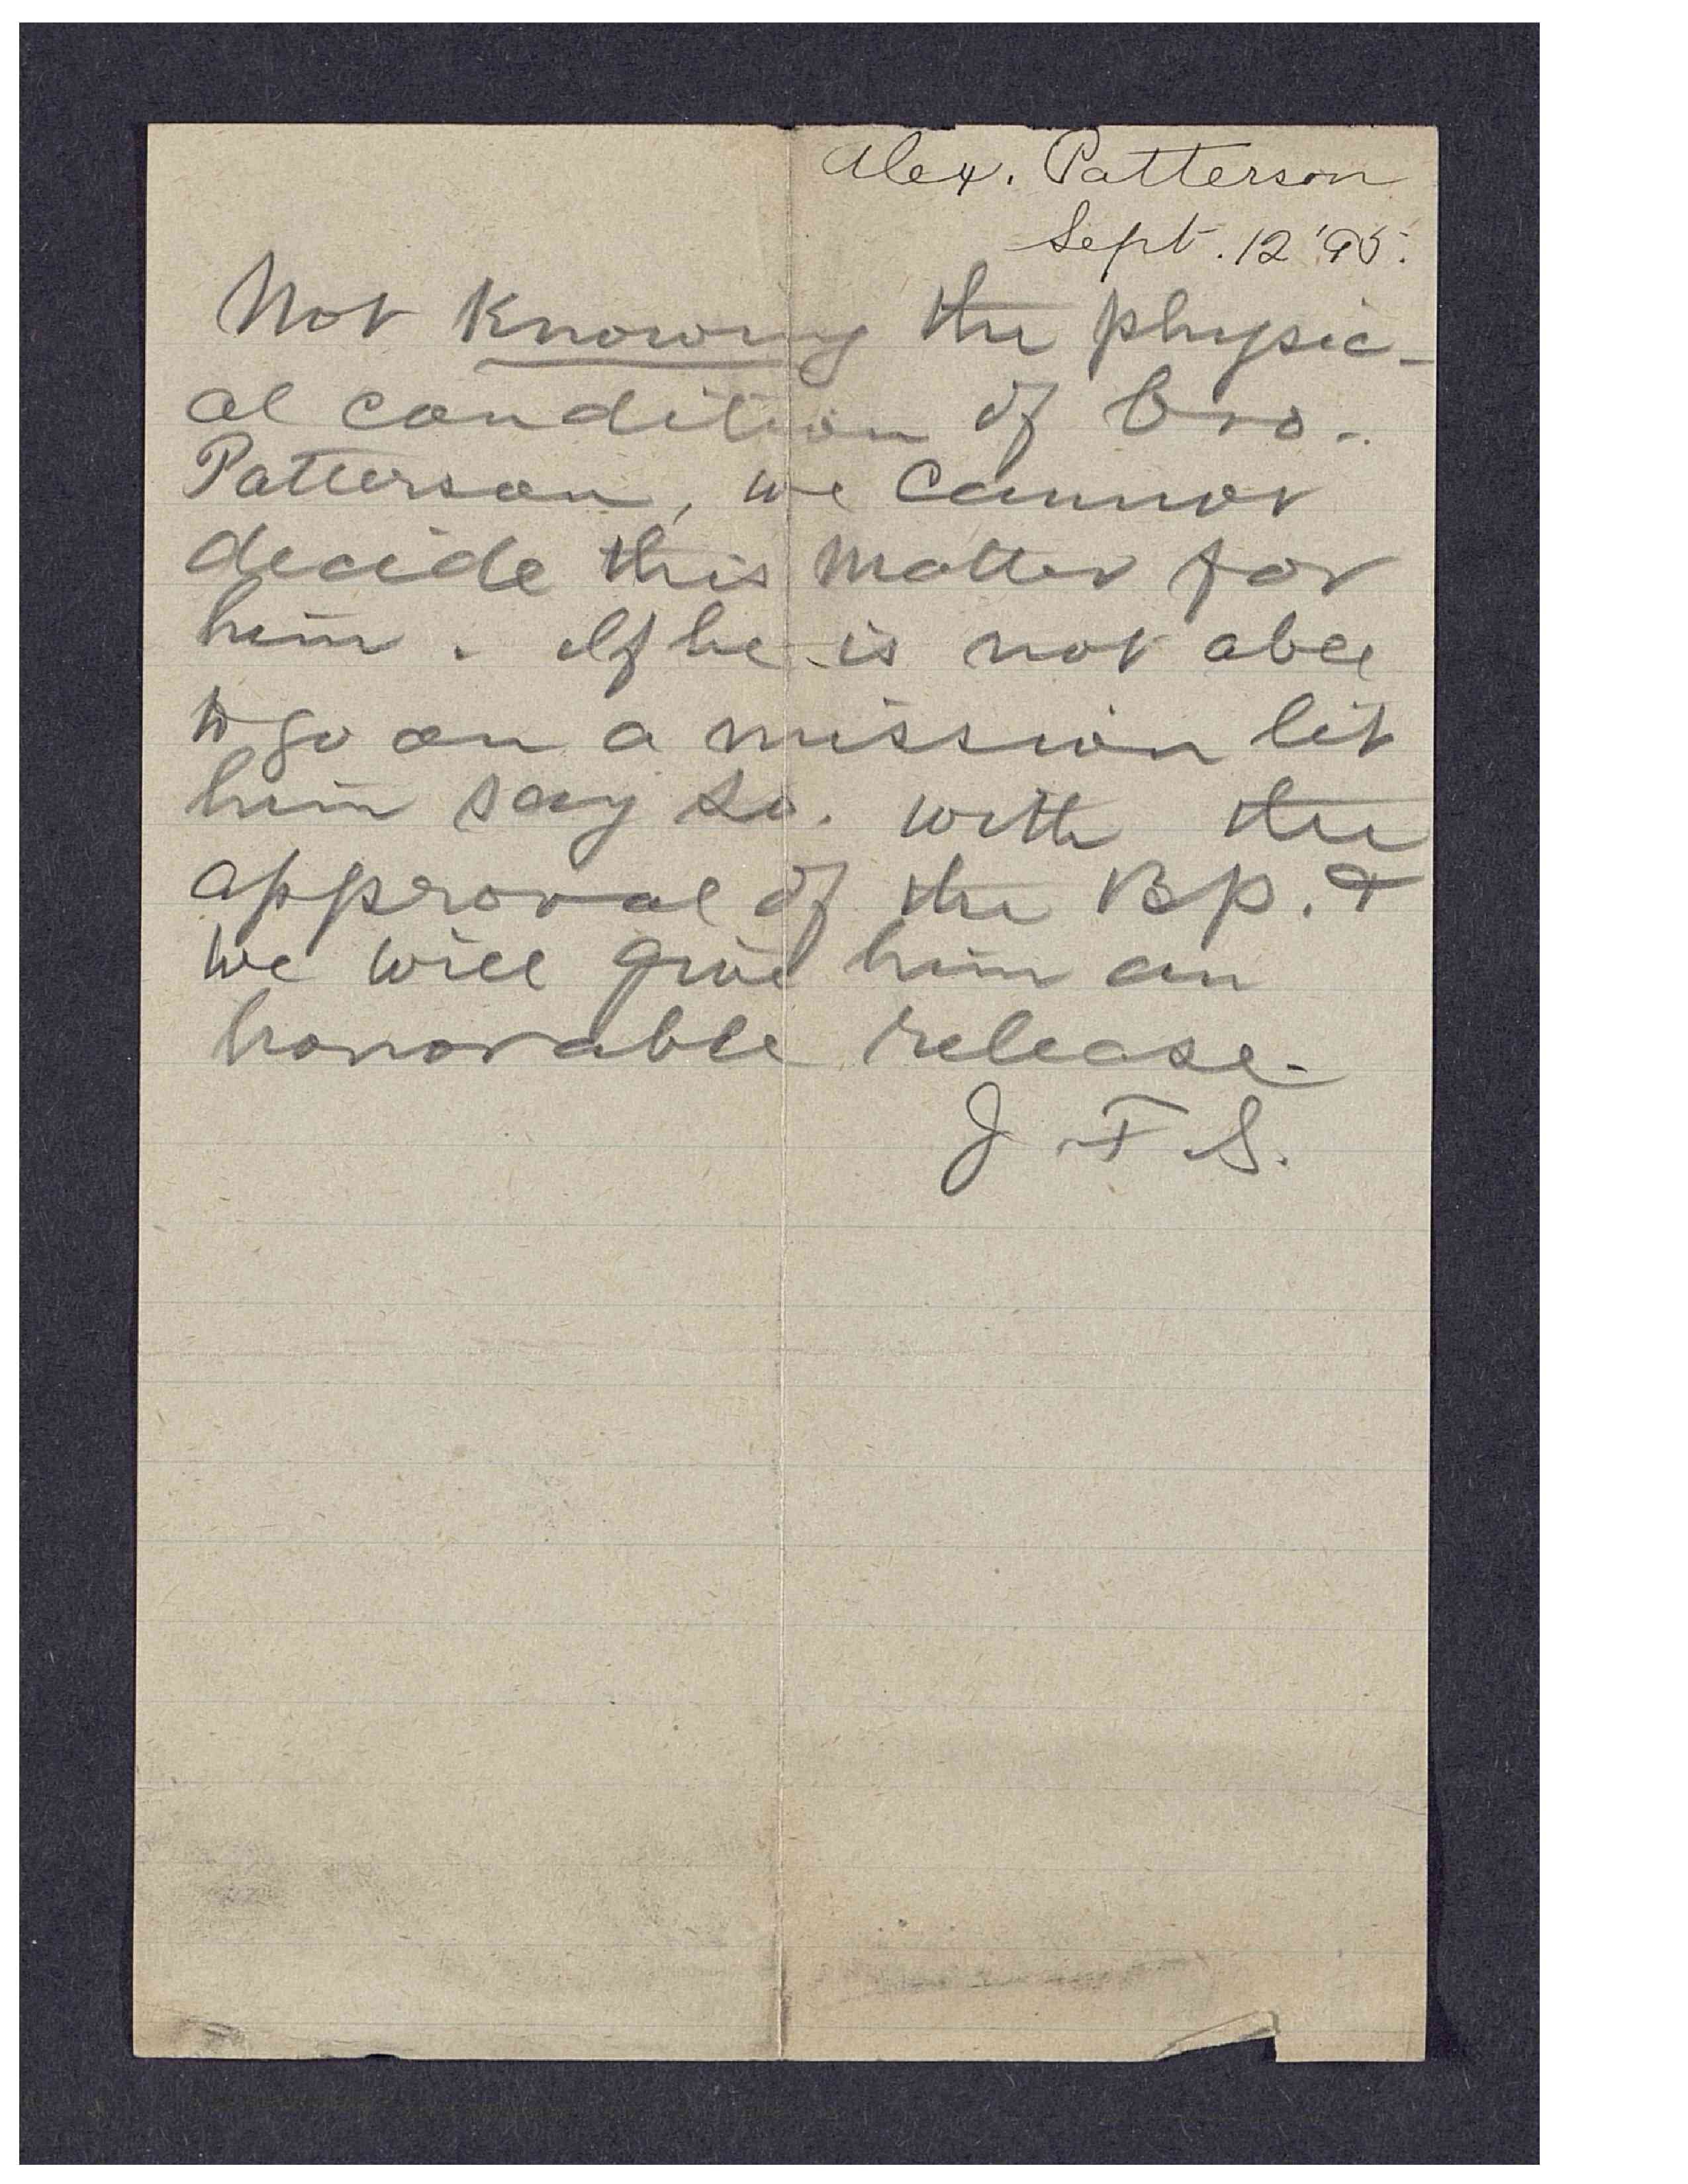 Alex. Patterson
Sept. 12 '95.
Not Knowing the physic-
al condition of bro.
Patterson, we cannot
decide this matter for
him. If he is not able
to go on a mission let
him say so. with the
approval of the Bp. &
we will give him an
honorable release.
J F S.